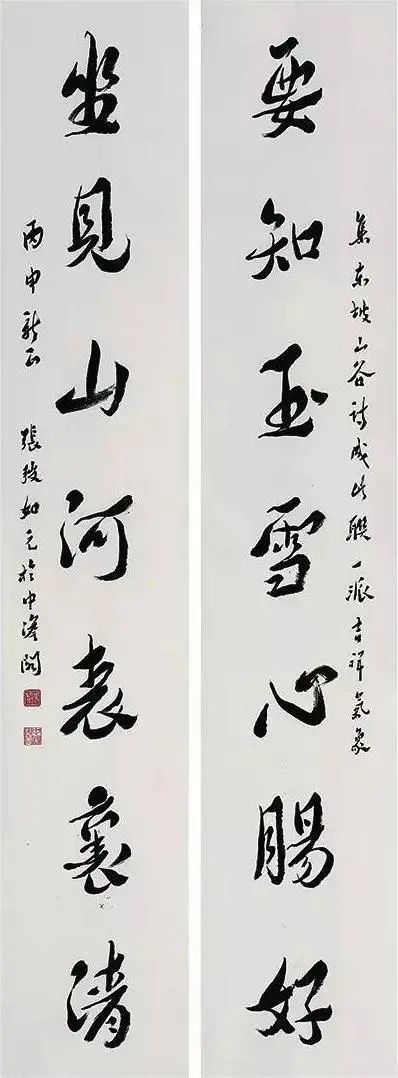 集東坡山谷詩成此聯一派吉祥氣象
要知玉雪心腸好
坐見山河表裏清
丙申新正 張 如元於中 閣